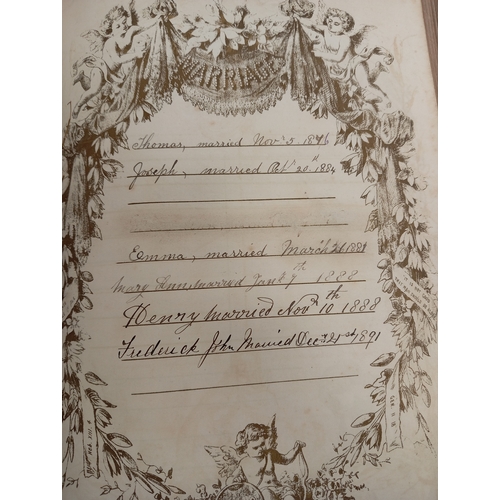 MARRIAGES
Thomas, married Novr 5, 1876
Joseph, married Oct 20th, 1884
Emma, married March 21 1881
Mary Ann married Jany 9th 1888
Henry married Novr 10th 1888
Frederick John Married Dec 21st 1891